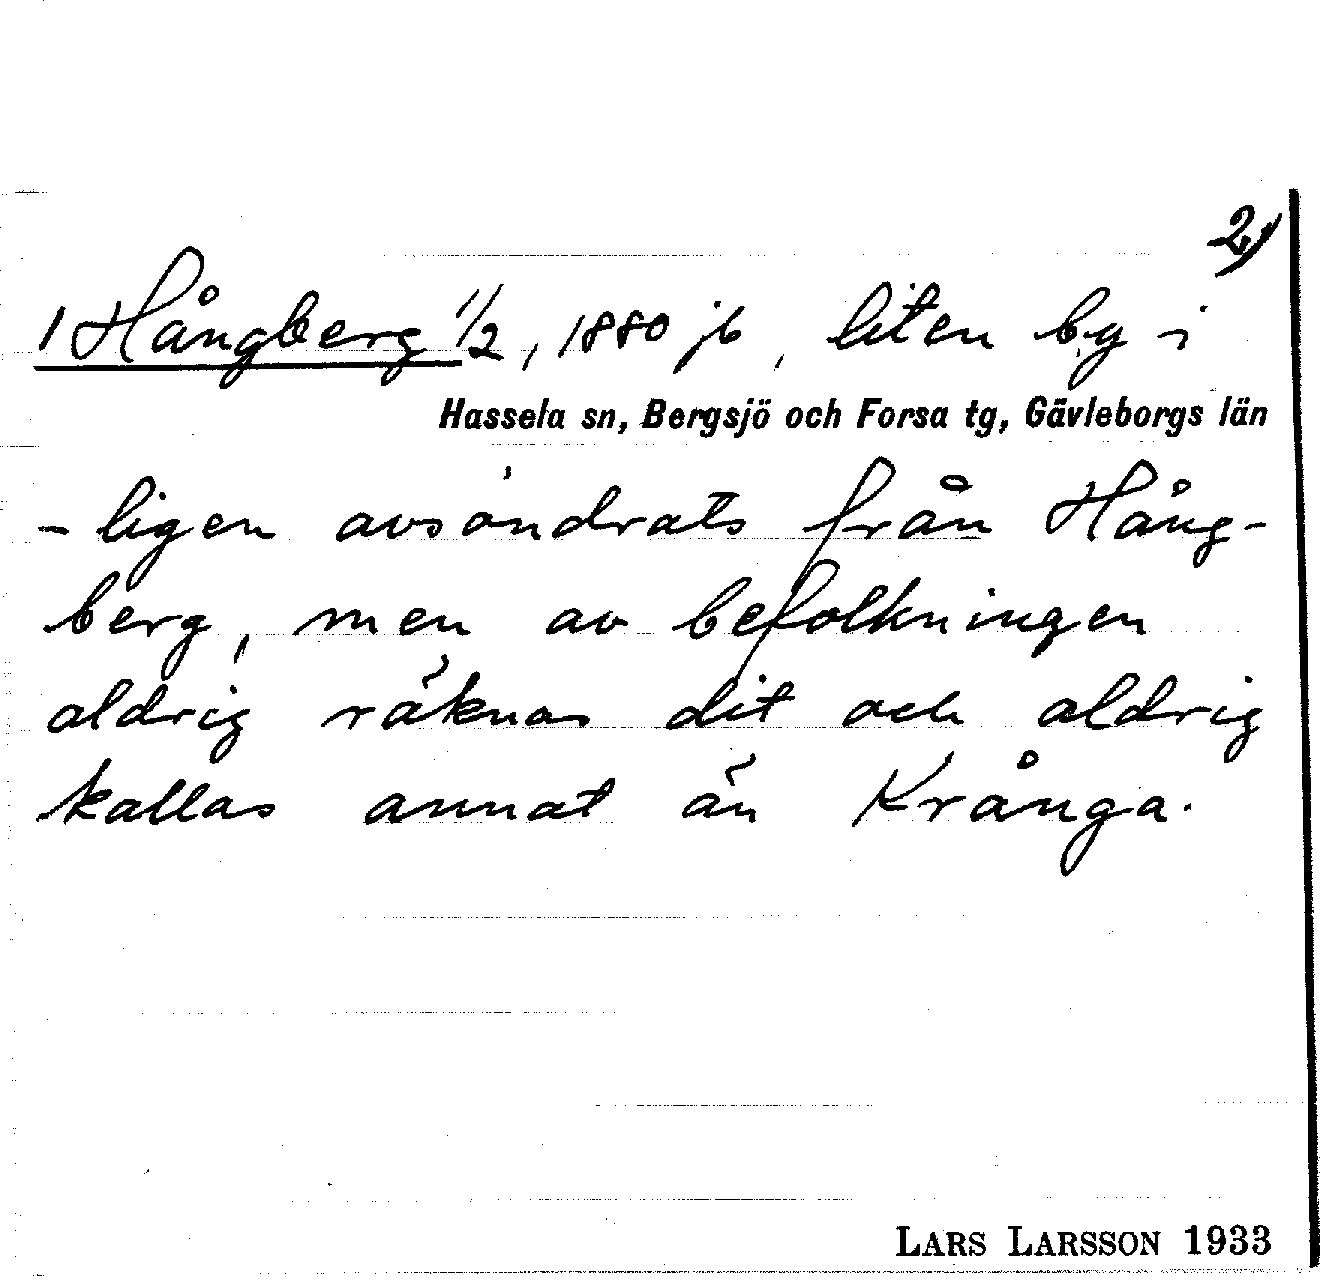 2)
1 Hångberg 1/2, 1880 jb, liten by i
Hassela sn, Bergsjö och Forsa tg, Gävleborgs län
- ligen avsöndrats från Hång-
berg, men av befolkningen
aldrig räknas dit och aldrig
kallas annat än Krånga.
LARS LARSSON 1933